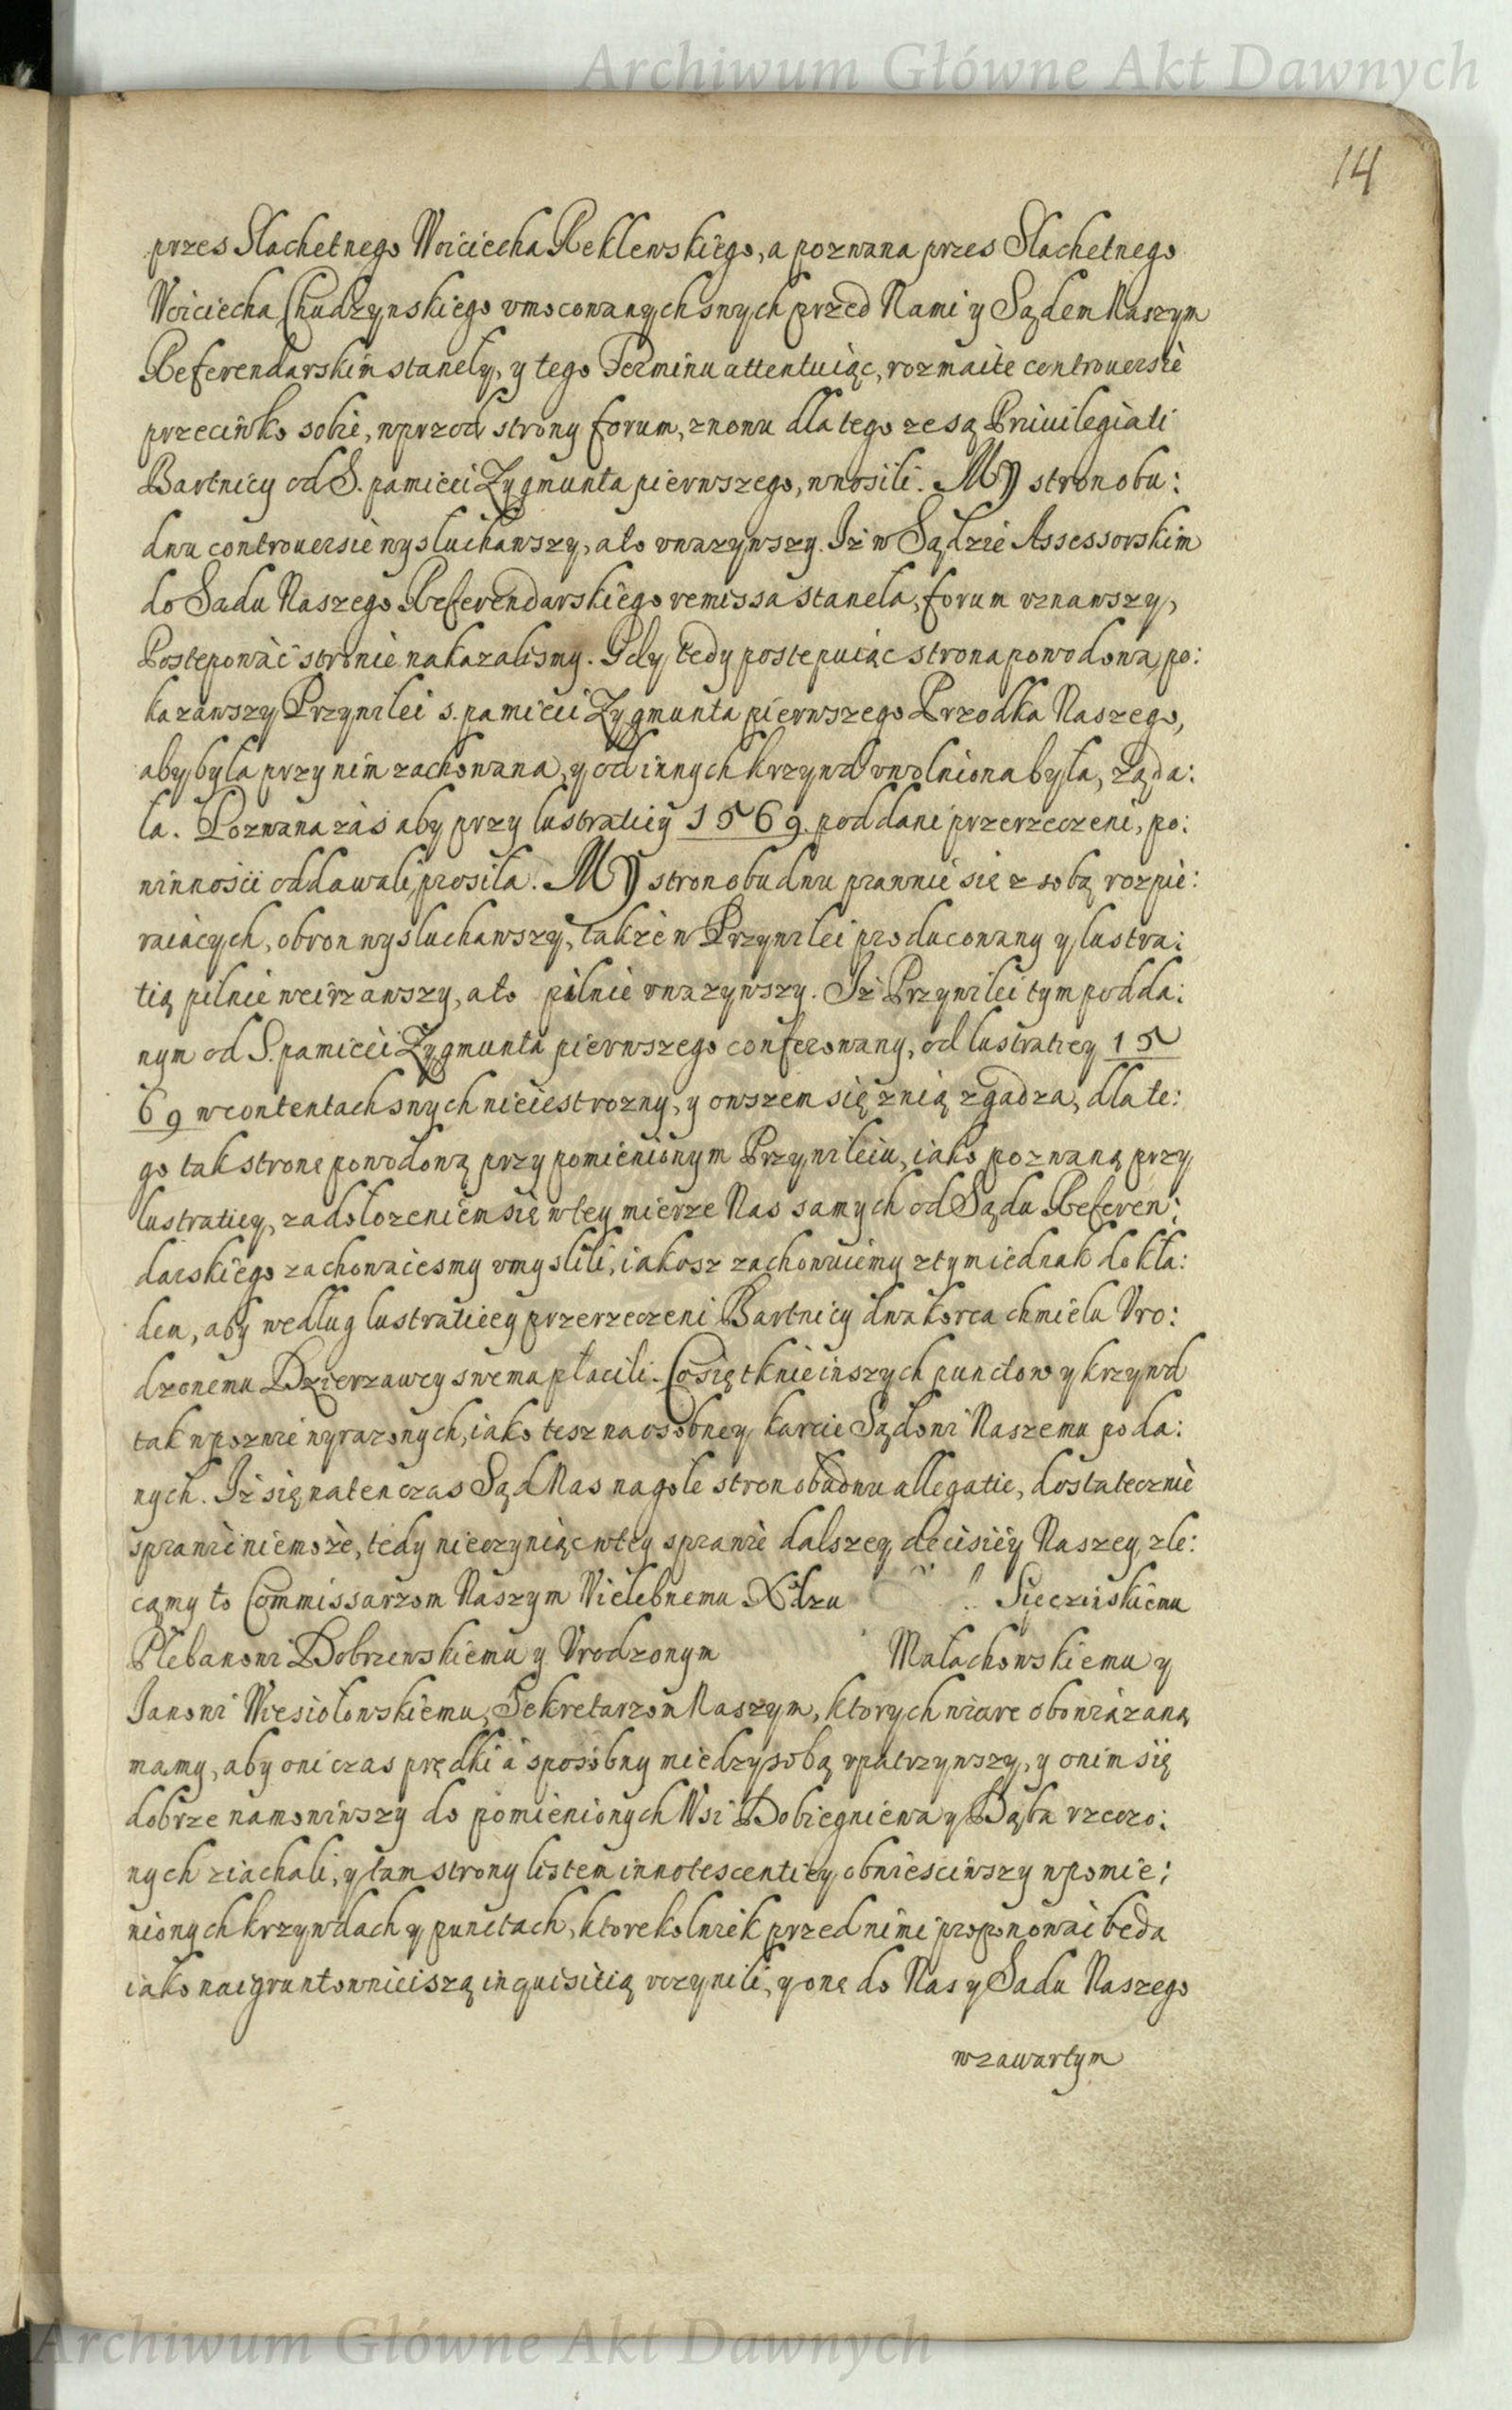 Archiwum Główne Akt Dawnych
14
przes Slachetnego Woiciecha Reklewskiego, a pozwana przes Slachetnego
Woiciecha Chudzynskiego vmocowanych swych przed Nami y Sądem Naszym
Referendarskim stanely, y tego Terminu attentuiąc, rozmaite controuersie
przeciwko sobie, wprzod strony forum, znowu dla tego ze są Priuilegiati
Bartnicy od S. pamieci Zygmunta pierwszego, wnosili. My stron obu:
dwu controuersie wysluchawszy, a to vwazywszy. Iz w Sądzie Assessorskim
do Sadu Naszego Referendarskiego remissa stanela, forum vznawszy,
Postepowac stronie nakazalismy. Gdy tedy postepuiąc strona powodowa, po:
kazawszy Przywilei s. pamieci Zygmunta pierwszego Przodka Naszego,
aby byla przy nim zachowana, y od innych krzywd vwolniona była, ząda:
la. Pozwana zas aby przy lustratiey 1569. poddani przerzeczeni, po:
winnosci oddawali, prosila. My stron obudwu prawnie się z sobą rozpie:
raiących, obron wysluchawszy, takze w Przywilei producowany y lustra:
tią pilnie weirzawszy, a to pilnie vwazywszy. Iz Przywilei tym podda:
nym od S. pamieci Zygmunta pierwszego conferowany, od lustratiey 15
69 w contentach swych nie iest rozny, y owszem się z nią zgadza, dla te:
go tak strone powodową przy pomienionym Przywileiu, iako pozwaną przy
lustratiey, za dolozeniem się w tey mierze Nas samych od Sądu Referen:
darskiego zachowac esmy vmyslili, iakosz zachowuiemy z tym iednak dokła:
dem, aby według lustratiey przerzeczeni Bartnicy dwa korca chmielu Vro:
dzonemu Dzierzawcy swema płacili. Co się tknie inszych punctow y krzywd
tak w pozwie wyrazonych, iako tesz na osobney karcie Sądowi Naszemu poda:
nych. Iż się na ten czas Sąd Nas na gole stron obudwu allegatie, dostatecznie
sprawić nie może, tedy nie czyniąc w tey sprawie dalszey decisiey Naszey, zle:
camy to Commissarzom Naszym Wielebnemu Xdzu Sieczińskiemu
Plebanowi Dobrzewskiemu y Vrodzonym Małachowskiemu y
Janowi Wiesiołowskiemu, Sekretarzom Naszym, ktorych wiare obowiązaną
mamy, aby oni czas prędki a sposobny miedzy sobą vpatrzywszy, y onim się
dobrze namowiwszy do pomienionych Wsi Dobiegniewa y Dąba rzeczo:
nych ziachali, y tam strony listem innotescentiey obwiesciwszy w pomie:
nionych krzywdach y punctach, ktorekolwiek przed nimi proponować będą
iako naigruntowniciszą inquisitią vczynili, y onę do Nas y Sadu Naszego
w zawartym
Archiwum Główne Akt Dawnych